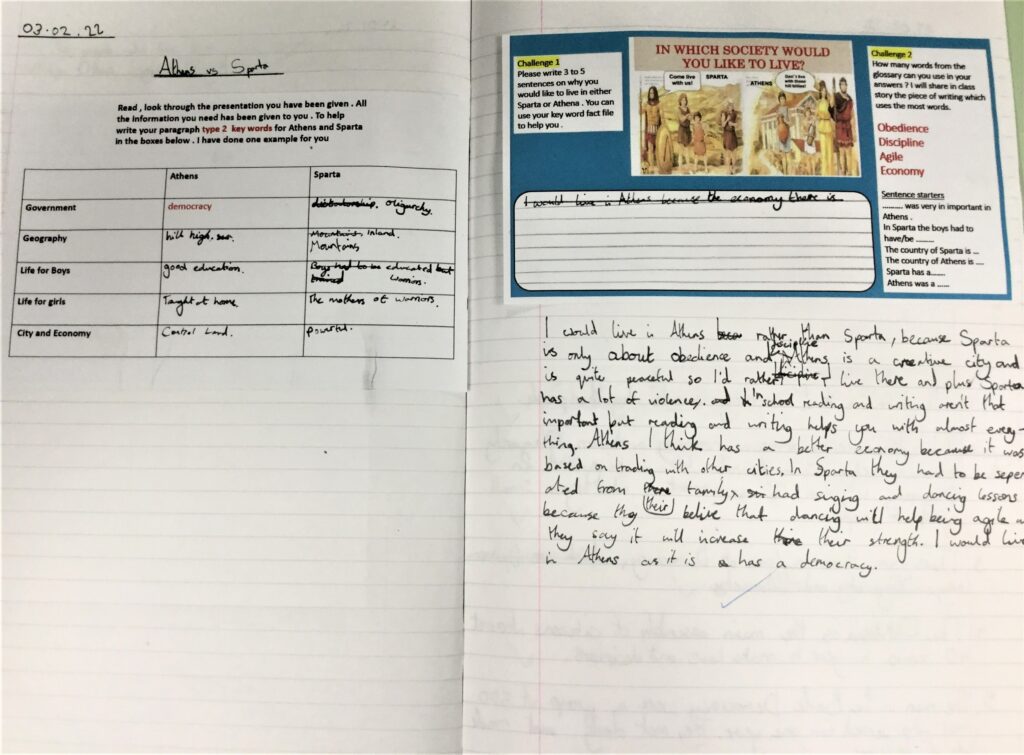 03.02.22
Athens vs Sparta
Read , look through the presentation you have been given . All
the information you need has been given to you . To help
write your paragraph type 2 key words for Athens and Sparta
in the boxes below . I have done one example for you
Athens Sparta
Government democracy dictatorship. oligarchy.
Geography hill high, sea. Mountains, inland.
Mountains,
Life for Boys good education. Boys had to be educated but
trained warriors.
Life for girls Taught at home. The mothers of warriors.
City and Economy Control Land. powerful.
Challenge 1
Please write 3 to 5
sentences on why you
would like to live in either
Sparta or Athena . You can
use your key word fact file
to help you .
IN WHICH SOCIETY WOULD
YOU LIKE TO LIVE?
Come live
with us!
SPARTA
ATHENS
Don't live
with those
I would live i Athens because the economy there is
Challenge 2
How many words from the
glossary can you use in your
answers ? I will share in class
story the piece of writing which
uses the most words.
Obedience
Discipline
Agile
Economy
Sentence starters
.......... was very in important in
Athens .
In Sparta the boys had to
have/be .........
The country of Sparta is ...
The country of Athens is ....
Sparta has a.......
Athens was a ......
I would live i Athens rather than Sparta, because Sparta
is only about obedience and discipline Athens is a creative city and
is quite peaceful so I'd rather live there and plus Sparta
has a lot of violence. In school reading and writing aren't that
important but reading and writing helps you with almost every-
thing. Athens I think has a better economy because it was
based on trading with other cities. In Sparta they had to be seper
ated from there family, had singing and dancing lessons
because they their belive that dancing will help being agile
they say it will increase there their strength. I would live
in Athens as it is a has a democracy.